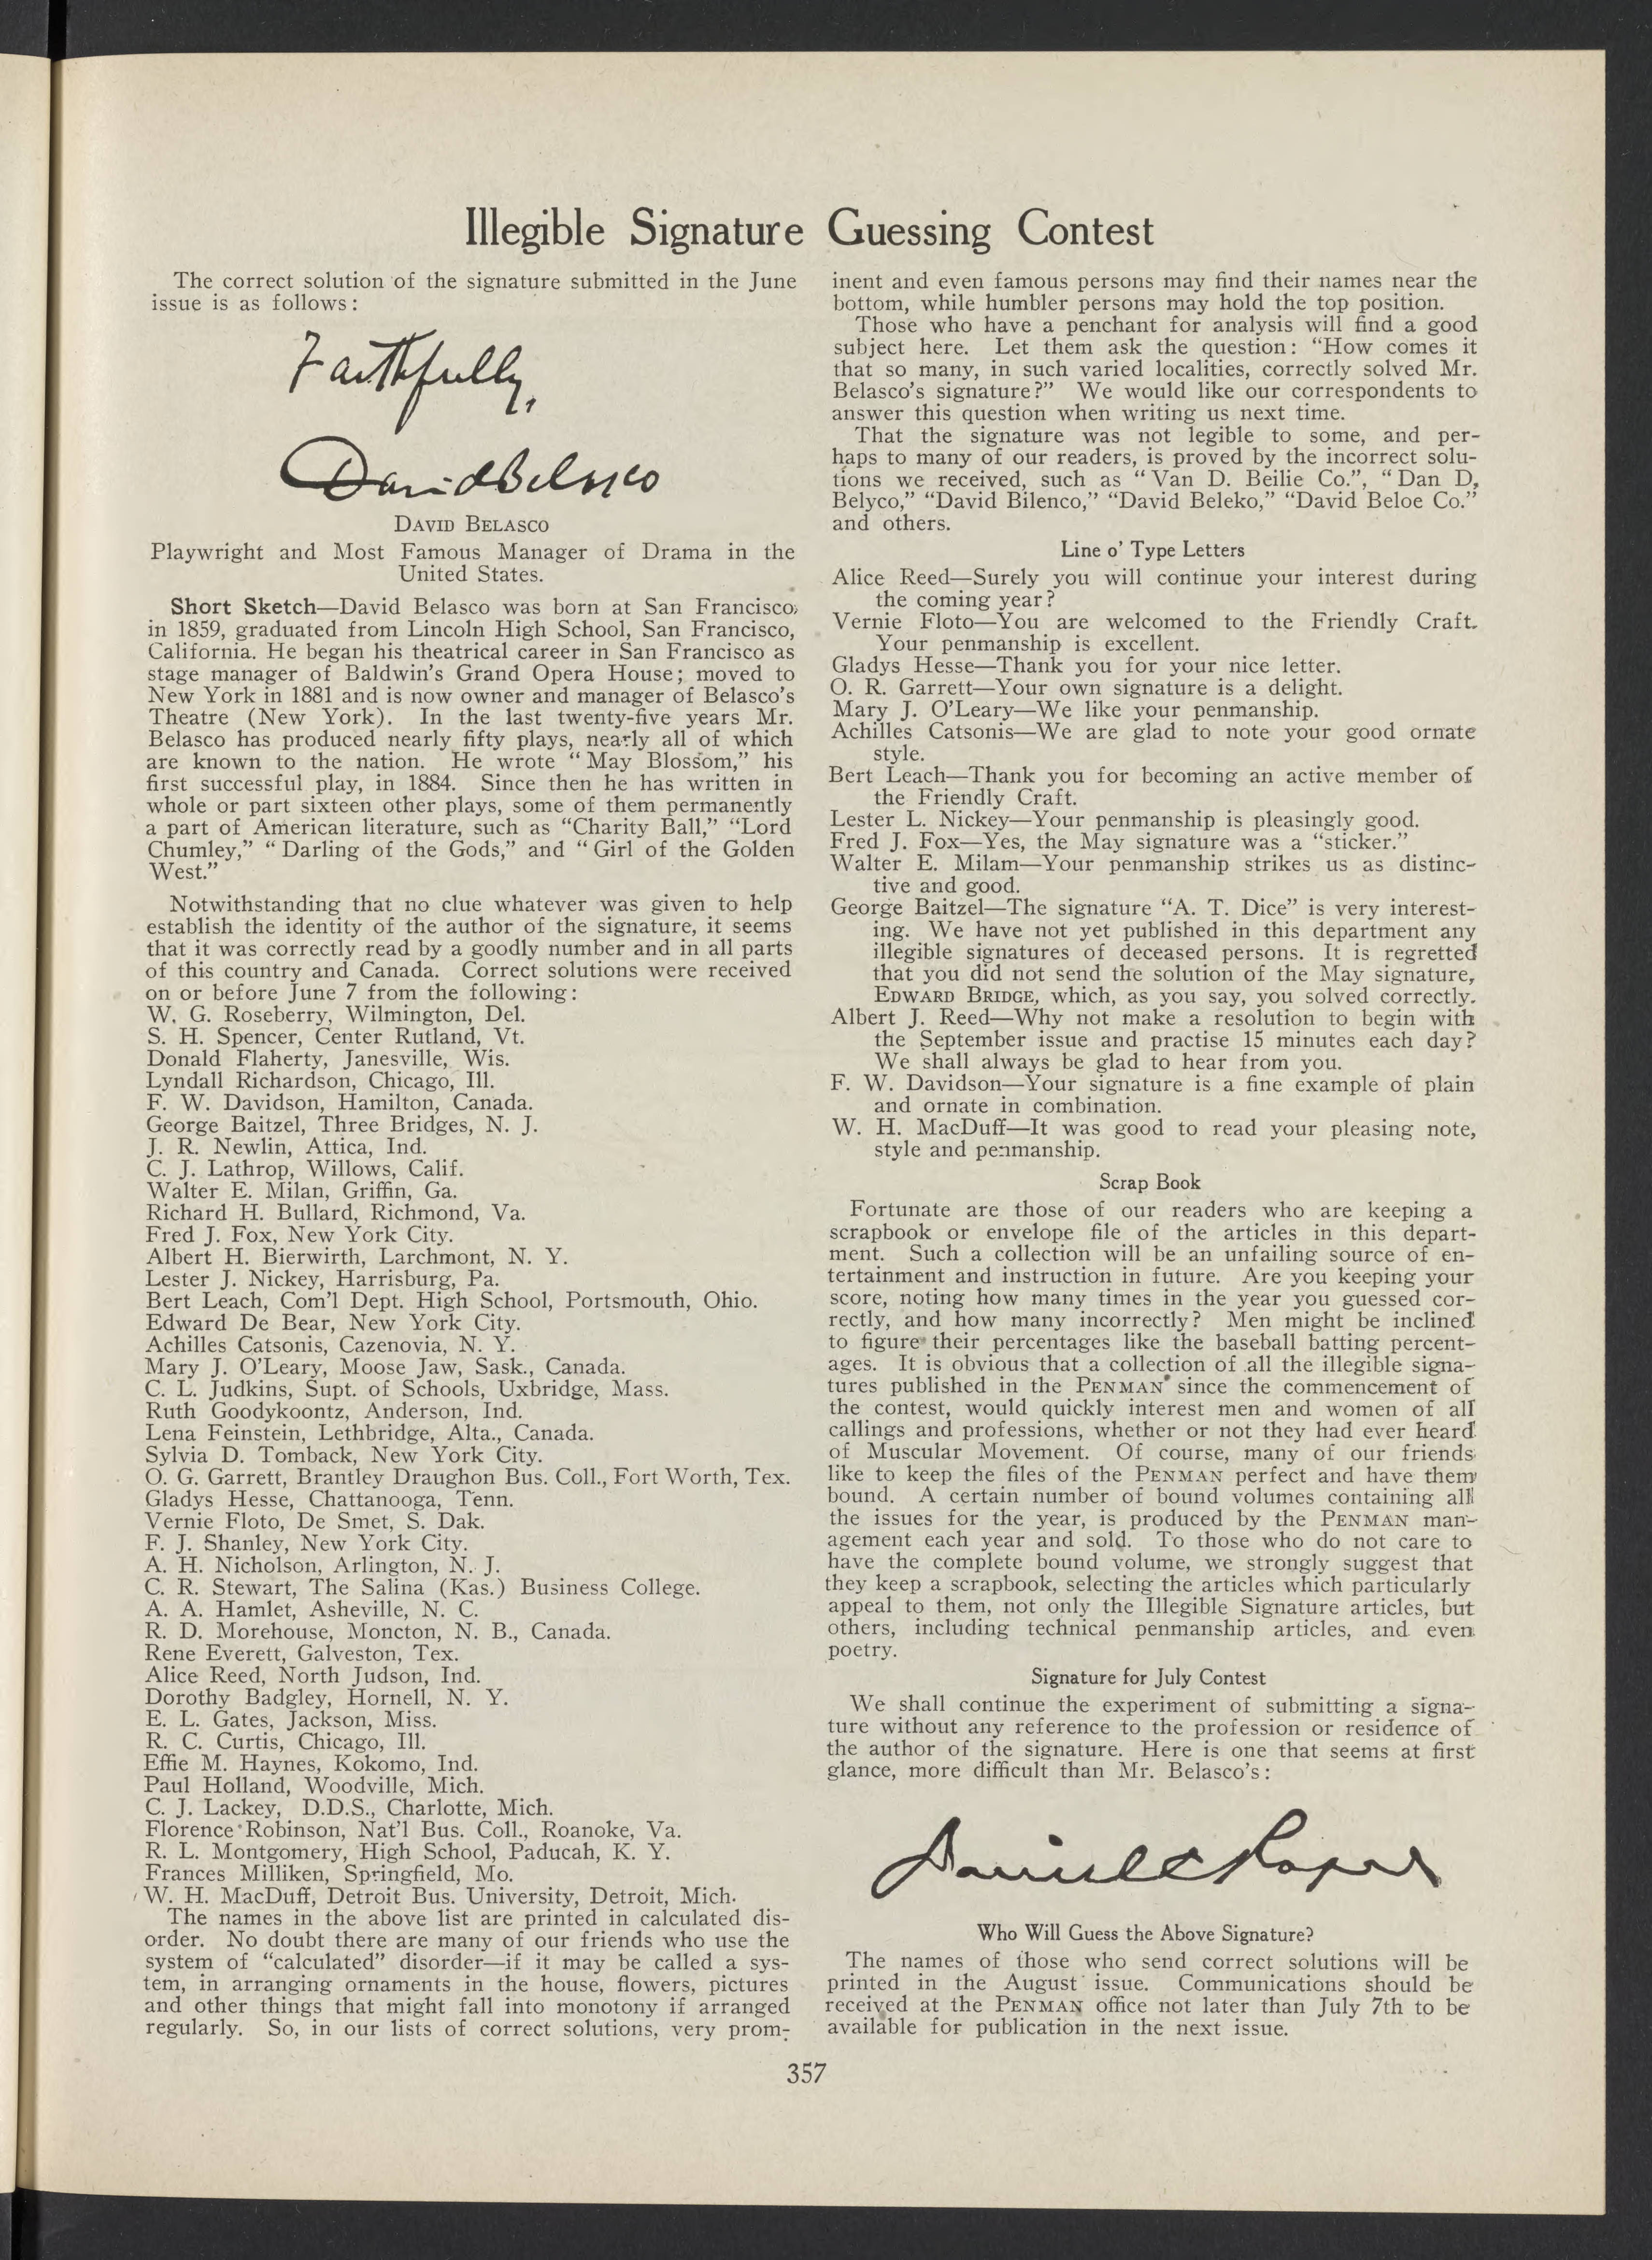 Illegible Signature Guessing Contest
The correct solution of the signature submitted in the June
issue is as follows:
Faithfully,
David Belasco
DAVID BELASCO
Playwright and Most Famous Manager of Drama in the
United States.
Short Sketch—David Belasco was born at San Francisco,
in 1859, graduated from Lincoln High School, San Francisco,
California. He began his theatrical career in San Francisco as
stage manager of Baldwin's Grand Opera House; moved to
New York in 1881 and is now owner and manager of Belasco's
Theatre (New York). In the last twenty-five years Mr.
Belasco has produced nearly fifty plays, nearly all of which
are known to the nation. He wrote "May Blossom," his
first successful play, in 1884. Since then he has written in
whole or part sixteen other plays, some of them permanently
a part of American literature, such as "Charity Ball," "Lord
Chumley," "Darling of the Gods," and "Girl of the Golden
West."
Notwithstanding that no clue whatever was given to help
establish the identity of the author of the signature, it seems
that it was correctly read by a goodly number and in all parts
of this country and Canada. Correct solutions were received
on or before June 7 from the following:
W. G. Roseberry, Wilmington, Del.
S. H. Spencer, Center Rutland, Vt.
Donald Flaherty, Janesville, Wis.
Lyndall Richardson, Chicago, Ill.
F. W. Davidson, Hamilton, Canada.
George Baitzel, Three Bridges, N. J.
J. R. Newlin, Attica, Ind.
C. J. Lathrop, Willows, Calif.
Walter E. Milan, Griffin, Ga.
Richard H. Bullard, Richmond, Va.
Fred J. Fox, New York City.
Albert H. Bierwirth, Larchmont, N. Y.
Lester J. Nickey, Harrisburg, Pa.
Bert Leach, Com'l Dept. High School, Portsmouth, Ohio.
Edward De Bear, New York City.
Achilles Catsonis, Cazenovia, N. Y.
Mary J. O'Leary, Moose Jaw, Sask., Canada.
C. L. Judkins, Supt. of Schools, Uxbridge, Mass.
Ruth Goodykoontz, Anderson, Ind.
Lena Feinstein, Lethbridge, Alta., Canada.
Sylvia D. Tomback, New York City.
O. G. Garrett, Brantley Draughon Bus. Coll., Fort Worth, Tex.
Gladys Hesse, Chattanooga, Tenn.
Vernie Floto, De Smet, S. Dak.
F. J. Shanley, New York City.
A. H. Nicholson, Arlington, N. J.
C. R. Stewart, The Salina (Kas.) Business College.
A. A. Hamlet, Asheville, N. C.
R. D. Morehouse, Moncton, N. B., Canada.
Rene Everett, Galveston, Tex.
Alice Reed, North Judson, Ind.
Dorothy Badgley, Hornell, N. Y.
E. L. Gates, Jackson, Miss.
R. C. Curtis, Chicago, Ill.
Effie M. Haynes, Kokomo, Ind.
Paul Holland, Woodville, Mich.
C. J. Lackey, D.D.S., Charlotte, Mich.
Florence Robinson, Nat'l Bus. Coll., Roanoke, Va.
R. L. Montgomery, High School, Paducah, K. Y.
Frances Milliken, Springfield, Mo.
W. H. MacDuff, Detroit Bus. University, Detroit, Mich.
The names in the above list are printed in calculated dis-
order. No doubt there are many of our friends who use the
system of "calculated" disorder—if it may be called a sys-
tem, in arranging ornaments in the house, flowers, pictures
and other things that might fall into monotony if arranged
regularly. So, in our lists of correct solutions, very prom-
inent and even famous persons may find their names near the
bottom, while humbler persons may hold the top position.
Those who have a penchant for analysis will find a good
subject here. Let them ask the question: "How comes it
that so many, in such varied localities, correctly solved Mr.
Belasco's signature?" We would like our correspondents to
answer this question when writing us next time.
That the signature was not legible to some, and per-
haps to many of our readers, is proved by the incorrect solu-
tions we received, such as "Van D. Beilie Co.", "Dan D,
Belyco," "David Bilenco," "David Beleko," "David Beloe Co."
and others.
Line o' Type Letters
Alice Reed—Surely you will continue your interest during
the coming year?
Vernie Floto—You are welcomed to the Friendly Craft.
Your penmanship is excellent.
Gladys Hesse—Thank you for your nice letter.
O. R. Garrett—Your own signature is a delight.
Mary J. O'Leary—We like your penmanship.
Achilles Catsonis—We are glad to note your good ornate
style.
Bert Leach—Thank you for becoming an active member of
the Friendly Craft.
Lester L. Nickey—Your penmanship is pleasingly good.
Fred J. Fox—Yes, the May signature was a "sticker."
Walter E. Milam—Your penmanship strikes us as distinc-
tive and good.
George Baitzel—The signature "A. T. Dice" is very interest-
ing. We have not yet published in this department any
illegible signatures of deceased persons. It is regretted
that you did not send the solution of the May signature,
EDWARD BRIDGE, which, as you say, you solved correctly.
Albert J. Reed—Why not make a resolution to begin with
the September issue and practise 15 minutes each day?
We shall always be glad to hear from you.
F. W. Davidson—Your signature is a fine example of plain
and ornate in combination.
W. H. MacDuff—It was good to read your pleasing note,
style and penmanship.
Scrap Book
Fortunate are those of our readers who are keeping a
scrapbook or envelope file of the articles in this depart-
ment. Such a collection will be an unfailing source of en-
tertainment and instruction in future. Are you keeping your
score, noting how many times in the year you guessed cor-
rectly, and how many incorrectly? Men might be inclined
to figure their percentages like the baseball batting percent-
ages. It is obvious that a collection of all the illegible signa-
tures published in the PENMAN since the commencement of
the contest, would quickly interest men and women of all
callings and professions, whether or not they had ever heard
of Muscular Movement. Of course, many of our friends
like to keep the files of the PENMAN perfect and have them
bound. A certain number of bound volumes containing all
the issues for the year, is produced by the PENMAN man-
agement each year and sold. To those who do not care to
have the complete bound volume, we strongly suggest that
they keep a scrapbook, selecting the articles which particularly
appeal to them, not only the Illegible Signature articles, but
others, including technical penmanship articles, and even
poetry.
Signature for July Contest
We shall continue the experiment of submitting a signa-
ture without any reference to the profession or residence of
the author of the signature. Here is one that seems at first
glance, more difficult than Mr. Belasco's:
Who Will Guess the Above Signature?
The names of those who send correct solutions will be
printed in the August issue. Communications should be
received at the PENMAN office not later than July 7th to be
available for publication in the next issue.
357